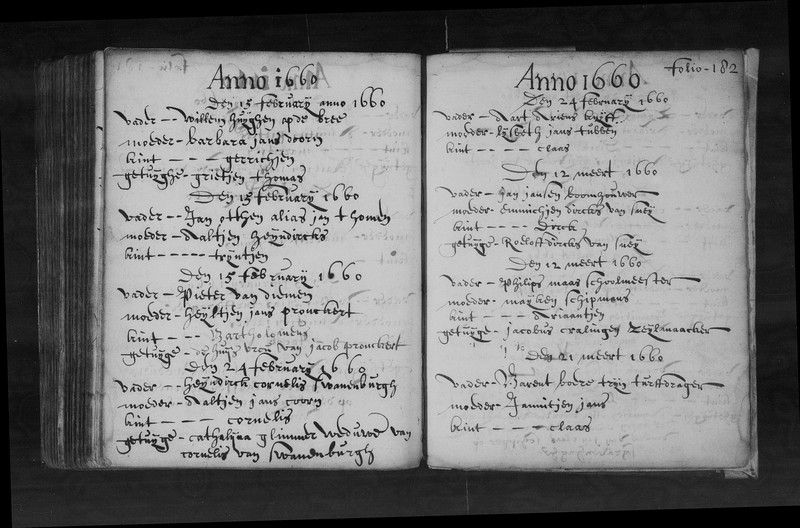 Anno 1660
Den 15 februarij anno 1660
vader - - willem huijghen op de bree
moeder - barbara jans doorn
kint - - - - gerrichjen
getuijghe - grietjen thomas
Den 15 februarij 1660
vader - - Jan otthen alias jan thomen
moeder - Aaltjen heijndircks
kint - - - - - trijntjen
Den 15 februarij 1660
vader - Pieter van diemen
moeder - heijltjen jans pronckert
kint - - - Bartholomeus
getuijge - de huijs vrou van jacob pronckert
Den 24 februarij 1660
vader - - heijndirck cornelis swanenburgh
moeder - Aaltjen jans coorn
kint - - - - cornelis
getuijge - cathalijna glimmer weduwe van
cornelis van swanenburgh
folio - 182
Anno 1660
Den 24 februarij 1660
vader - Aart driens
moeder - lijsbeth jans tubben
kint - - - - - claas
Den 12 meert 1660
vader - Jan jansen boomhouwer
moeder - emmichjen dircks van
kint - - - - - Dirck
getuijge - Roeloff dircks van
Den 12 meert 1660
vader - Philips maas schoolmeester
moeder - maijken schipmans
kint - - - - Ariaantjen
getuijge - jacobus cralingen
Den 21 meert 1660
vader - Barent turffdrager
moeder - Jannitjen jans
kint - - - - - claas